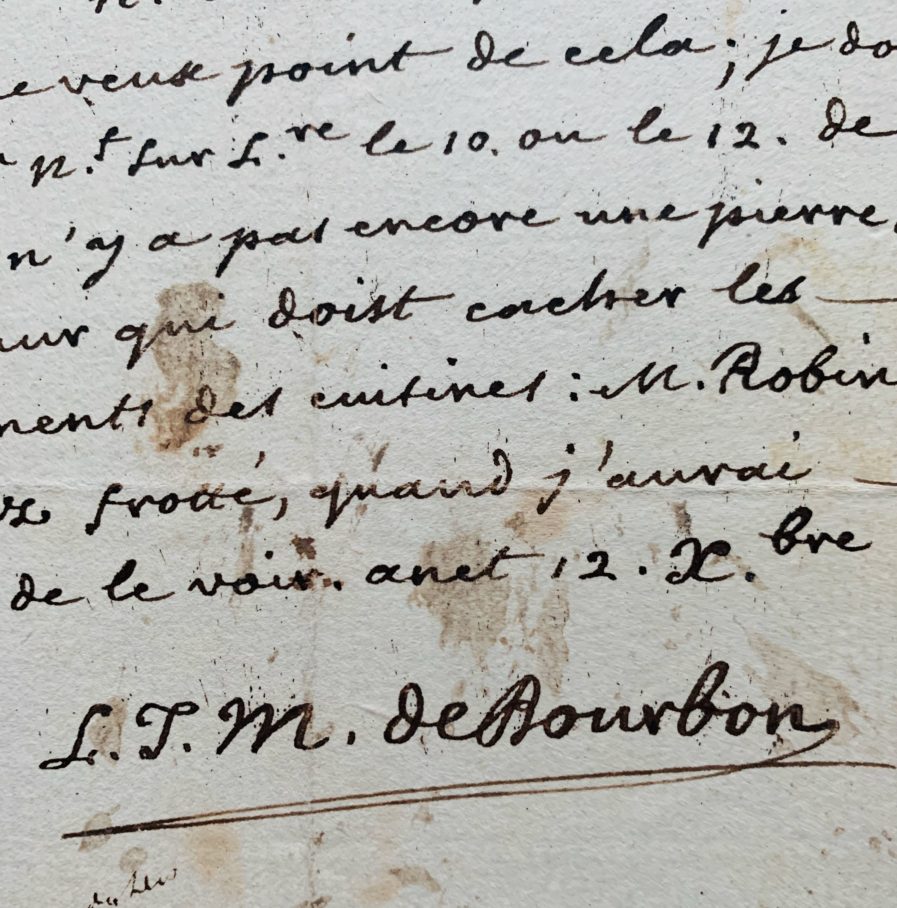 e veux point de cela; je do
n.t sur L.re le 10. ou le 12. de
n'y a pas encore une pierre.
ur qui doist cacher les
ments des cuisines : M. Robin
frotté, quand j'aurai
de le voir. anet 12. X.bre
L. J. M. de Bourbon